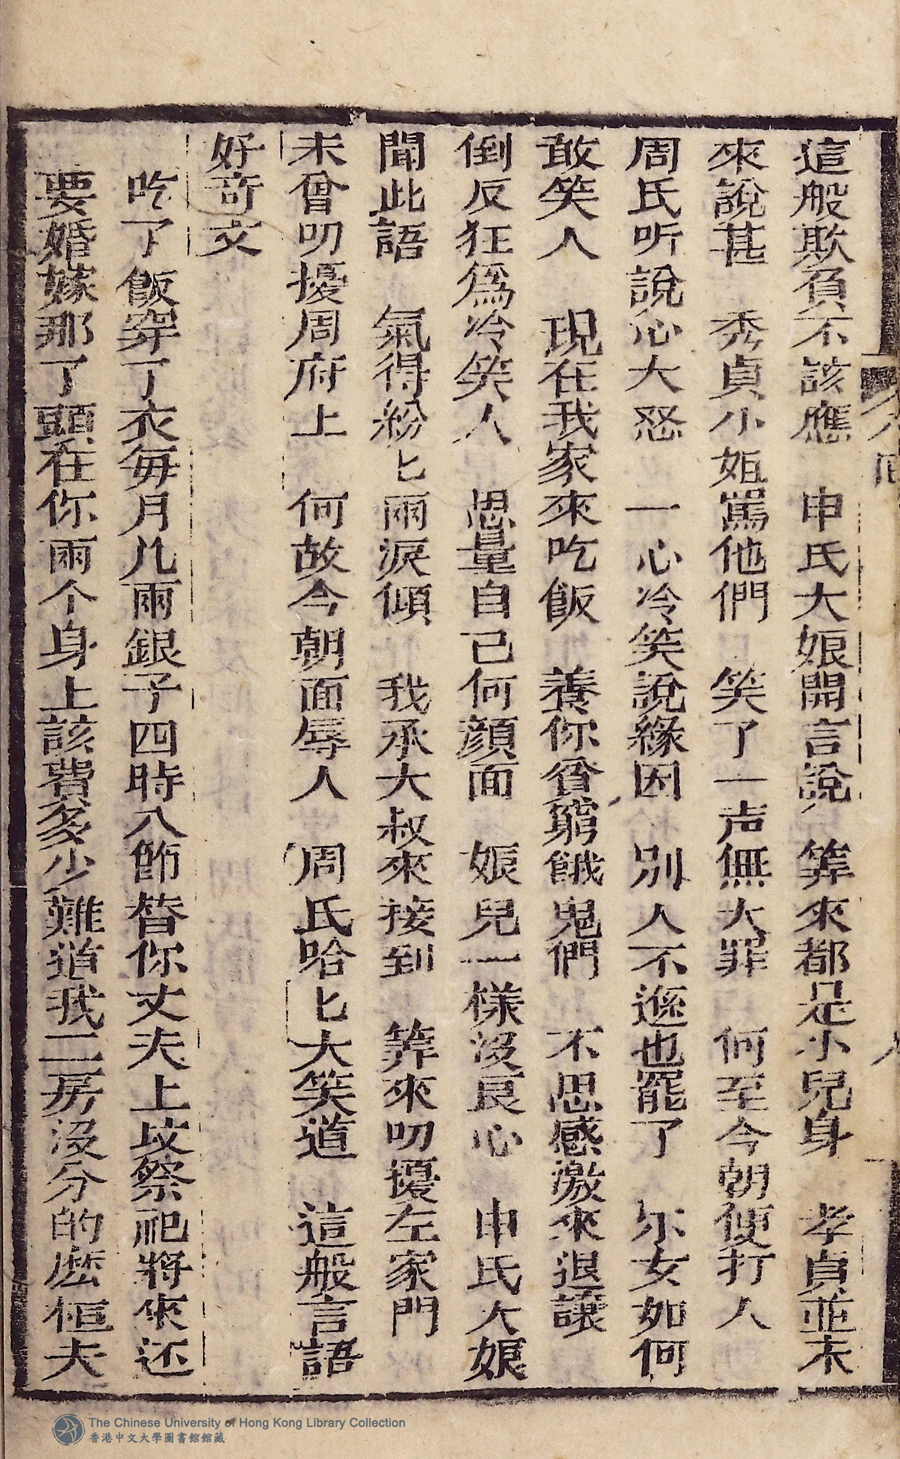 這般欺負不該應　申氏大娘開言說　筭來都是小兒身　孝貞並未
來說甚　秀貞小姐罵他們　笑了一声無大罪　何至今朝便打人
周氏听說心大怒　一心冷笑說緣因　别人不遜也罷了　尔女如何
敢笑人　現在我家來吃飯　養你貧窮餓鬼們　不思感激來退讓
倒反狂爲冷笑人　思量自己何顔面　娘兒一樣没良心　申氏大娘
聞此語　氣得紛匕兩淚傾　我承大叔來接到　筭來叨擾左家門
未曾叨擾周府上　何故今朝面辱人　周氏哈匕大笑道　這般言語
好奇文
吃了飯穿了衣每月几兩銀子四時八節替你丈夫上坟祭祀將來还
要婚嫁那了頭在你兩个身上該費多少難道我二房没分的麽恒夫
八回
八
The Chinese University of Hong Kong Library Collection
香港中文大學圖書館館藏